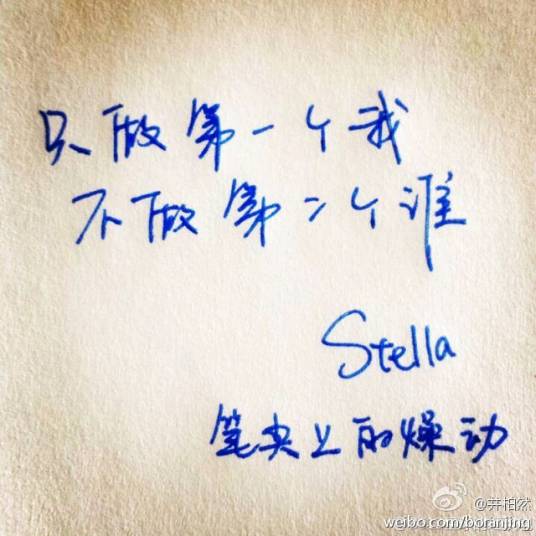 只做第一个我
不做第二个谁
Stella
笔尖上的燥动
@井柏然
weibo.com/boranjing